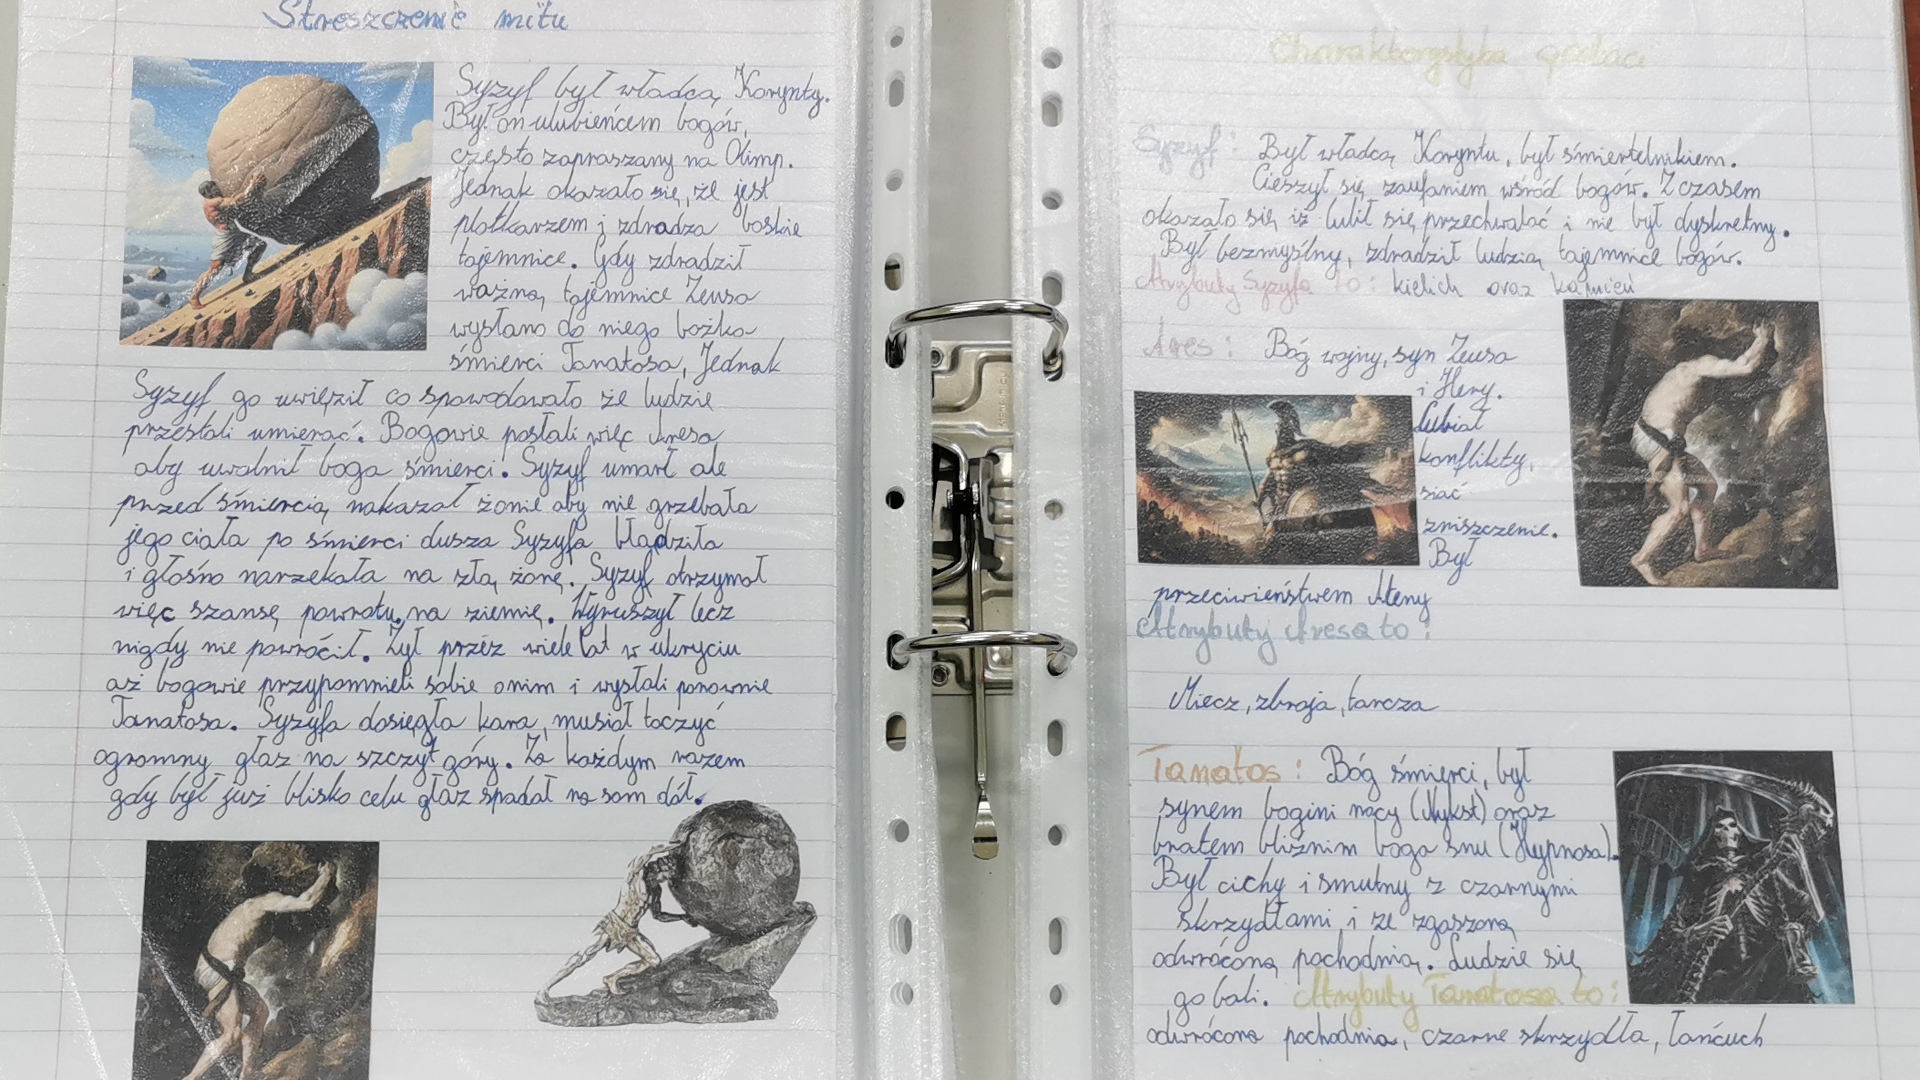 Streszczenie mitu
Syzyf był władcą Korynty.
Był on ulubieńcem bogów,
często zapraszany na Olimp.
Jednak okazało się, że jest
plotkarzem i zdradza boskie
tajemnice. Gdy zdradził
ważną tajemnice Zeusa
wysłano do niego bożka
śmierci Tanatosa, Jednak
Syzyf go uwięził co spowodowało że ludzie
przestali umierać. Bogowie posłali więc Aresa
aby uwolnił boga śmierci. Syzyf umarł ale
przed śmiercią nakazał żonie aby nie grzebała
jego ciała po śmierci dusza Syzyfa błądziła
i głośno narzekała na złą żonę. Syzyf otrzymał
więc szansę powrotu na ziemię. Wyruszył lecz
nigdy nie powrócił. Żył przez wiele lat w ukryciu
aż bogowie przypomnieli sobie o nim i wysłali ponownie
Tanatosa. Syzyfa dosięgła kara, musiał toczyć
ogromny głaz na szczyt góry. Za każdym razem
gdy był już blisko celu głaz spadał na sam dół.
Charakterystyka postaci
Syzyf: Był władcą Koryntu, był śmiertelnikiem.
Cieszył się zaufaniem wśród bogów. Z czasem
okazało się iż lubił się przechwalać i nie był dyskretny.
Był bezmyślny, zdradził ludzią tajemnice bogów.
Atrybuty Syzyfa to: kielich oraz kamień
Ares: Bóg wojny, syn Zeusa
i Hery.
Lubiał
konflikty,
siać
zniszczenie.
Był
przeciwieństwem Ateny
Atrybuty Aresa to:
Miecz, zbroja, tarcza
Tanatos: Bóg śmierci, był
synem bogini nocy (Nykst) oraz
bratem bliźnim boga snu (Hypnosa).
Był cichy i smutny z czarnymi
skrzydłami i ze zgaszoną
odwróconą pochodnią. Ludzie się
go bali. Atrybuty Tanatosa to:
odwrócona pochodnia, czarne skrzydła, łańcuch